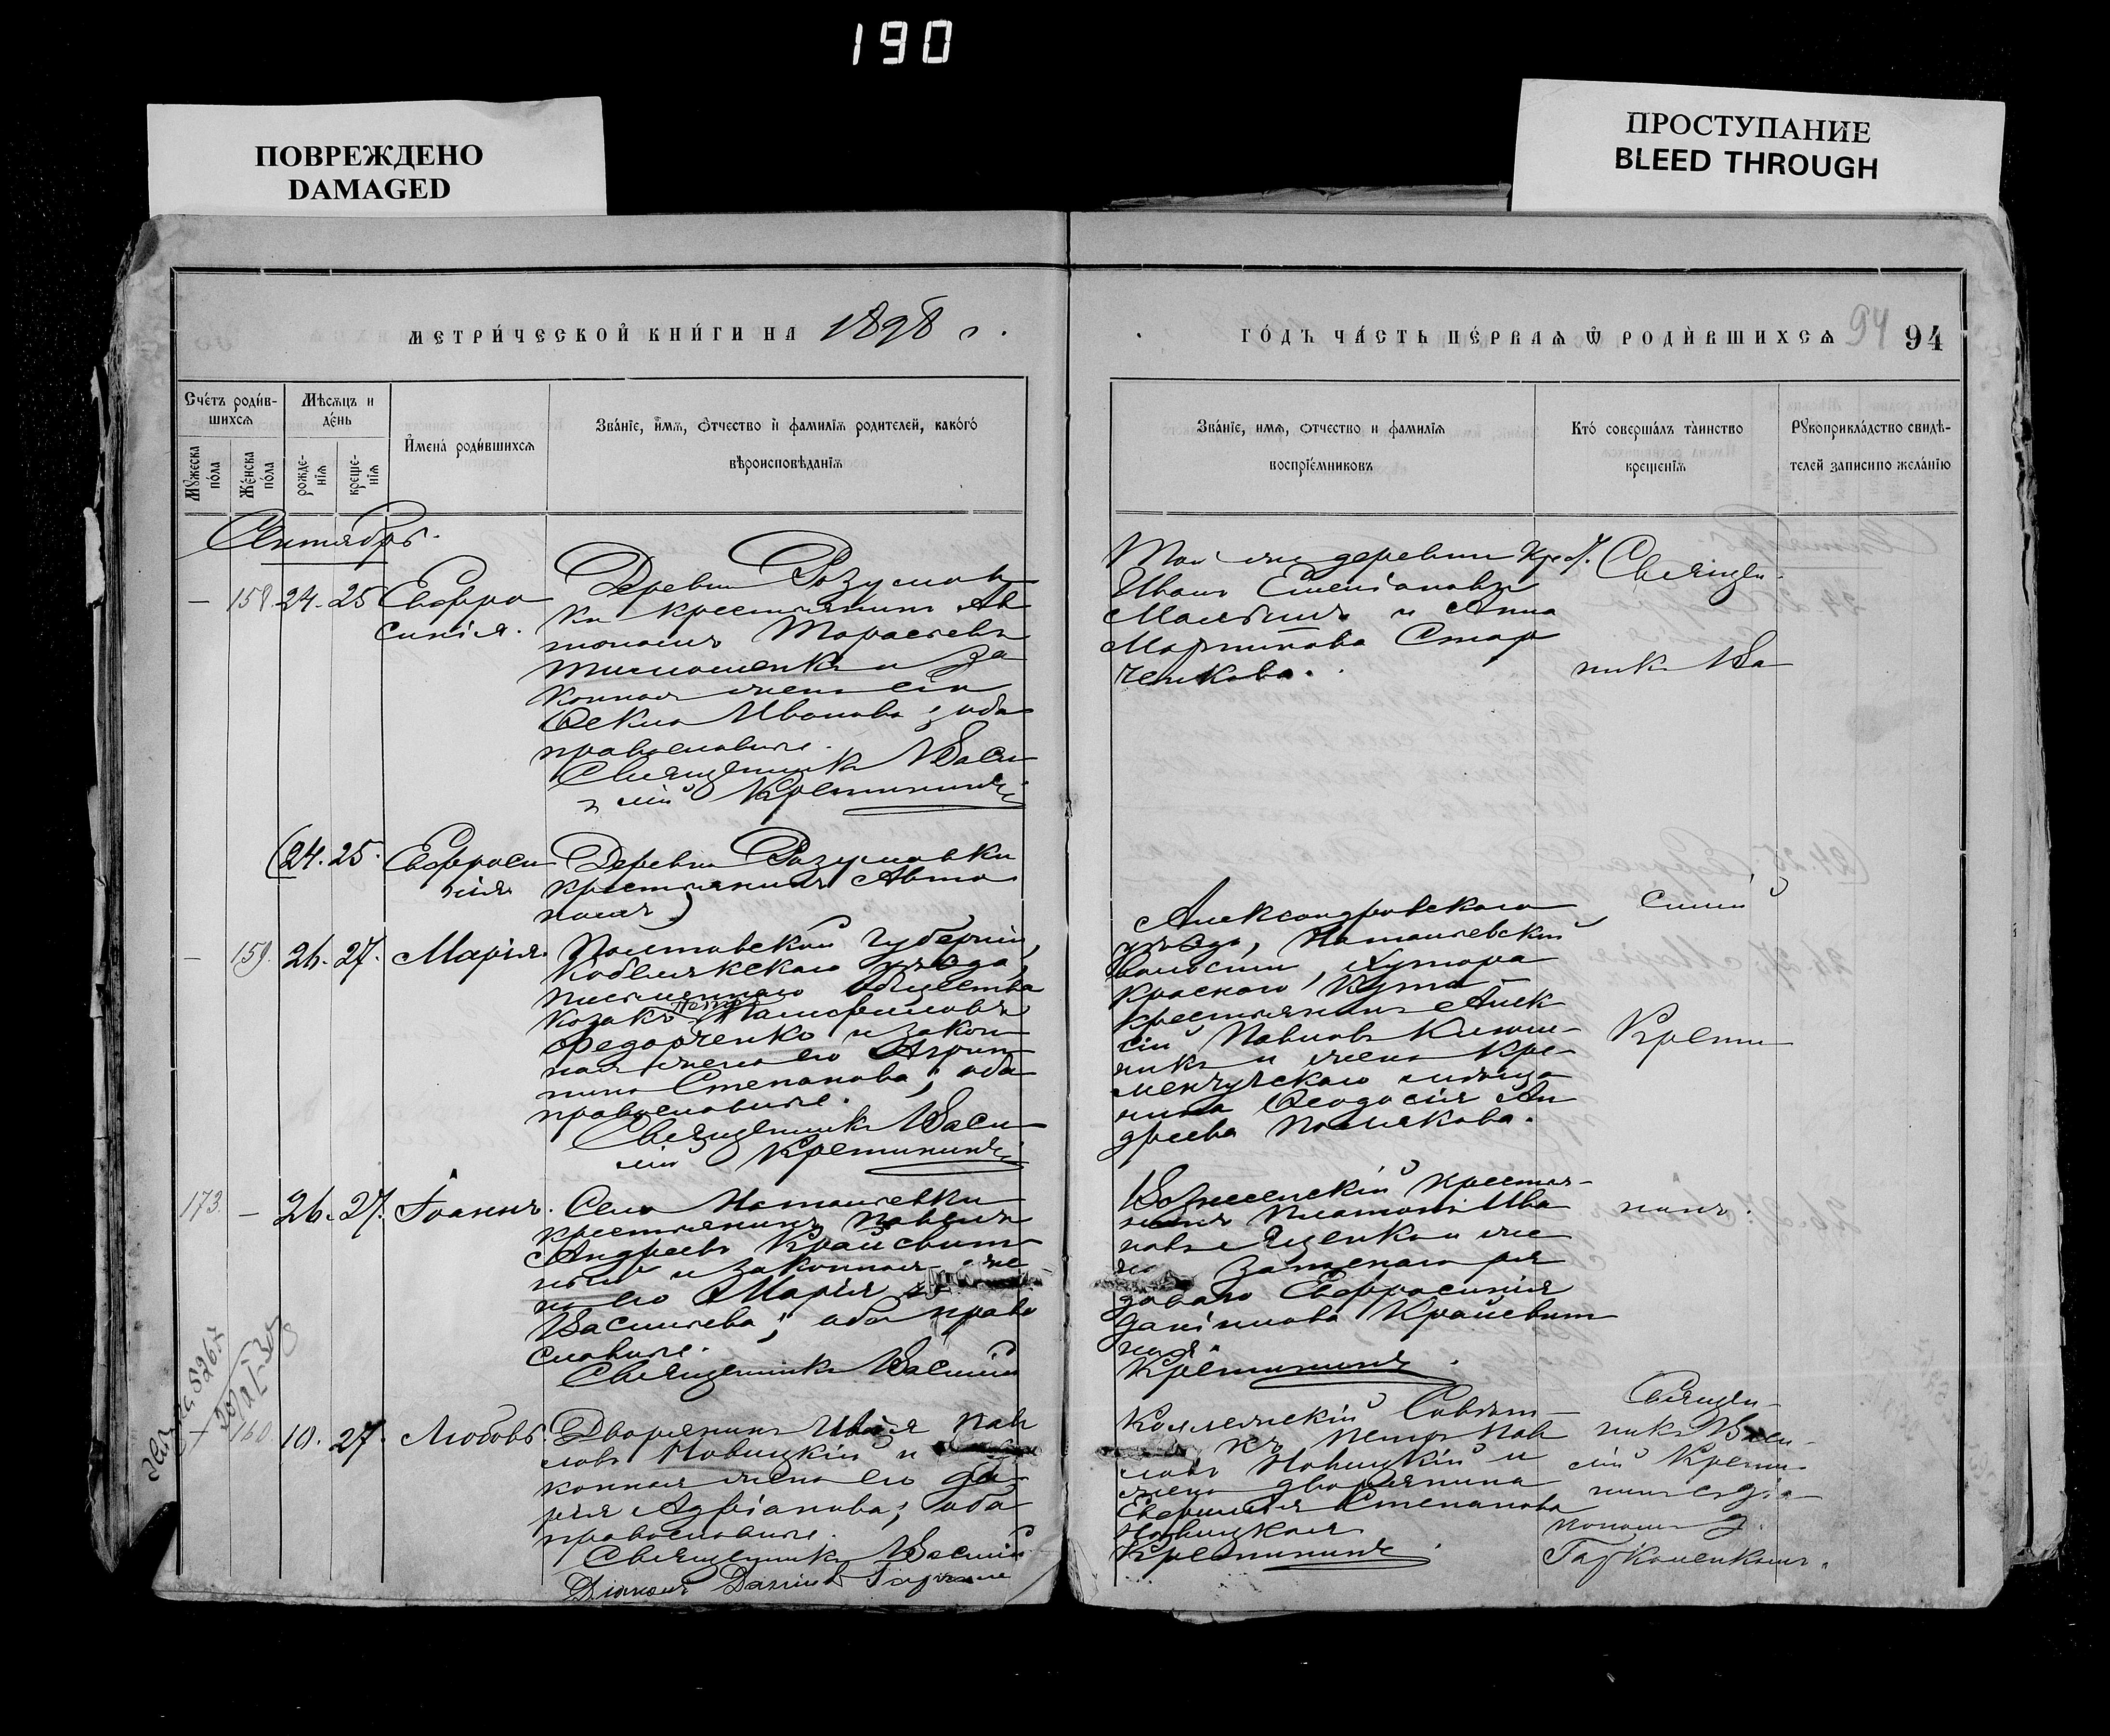 190
ПОВРЕЖДЕНО
DAMAGED
ПРОСТУПАНИЕ
BLEED THROUGH
МЕТРИ́ЧЕСКОЙ КНИ́ГИ НА 1898 г.
ГО́ДЪ ЧА́СТЬ ПЕ́РВАѦ Ѿ РОДИ́ВШИХСѦ 94 94
Сче́тъ роди́в-
шихсѧ
Мѣсѧцъ и
де́нь
Мꙋжеска
по́ла
Же́нска
по́ла
рожде-
нїѧ
креще-
нїѧ
Имена́ роди́вшихсѧ
Зва́нїе, и́мѧ, ѻтчество и фамилїѧ родителей, како́гѡ
вѣроисповѣданїѧ
Зва́нїе, имѧ, ѻтчество и фамилїѧ
воспрїе́мниковъ
Кто̀ соверша́лъ та́инство
креще́нїѧ
Рꙋкоприкла́дство свидѣ-
телей записи по жела́нїю
Сентябрь.
— 158 24. 25 Евфро
синія.
Деревни Розумов
ки крестьянинъ Ав
тономъ Тарасьевъ
Тимошенко и за
конная жена его
Ѳекла Иванова; оба
православные.
Священникъ Васи
лій Крещановскій
Той же деревни кр.
Иванъ Степановъ
и Анна
Мартинова Стар
ченкова.
Священ-
никъ Ва
(24. 25. Евфроси
нія
Деревни Розумовки
крестьянинъ Авто
номъ)
силій
— 159. 26. 27. Марія.
Полтавской губерніи,
Кобелякскаго уѣзда,
общества
козакъ Петръ Памфиловъ
Федорченко и закон
ная жена его Агрип
пина Степанова; оба
православные.
Священникъ Васи
лій
Александровскаго
уѣзда, Натальевской
волости, хутора
Краснаго Кута
крестьянинъ Алек
сій Павловъ
и жена Кре-
менчугскаго мѣща
нина Ѳеодосія Ан
дреева Полякова.
173. — 26. 27. Іоаннъ.
Села Натальевки
крестьянинъ Павелъ
Андреевъ Крайсвит
ный и законная же
на его Марія
Васильева; оба право
славные.
Священникъ Василій
Вознесенскій крестья-
нинъ Платонъ Ива
новъ Яценко и же
на запаснаго ря
доваго Евфросинія
Даніилова Крайсвит
ная.
160 10. 27. Любовь.
Дворянинъ Иванъ Пав
ловъ Новицкій и
конная жена его Да
рія Адріанова; оба
православные.
Священникъ Василій
Діаконъ Даніилъ
Коллежскій Совѣт-
къ Петръ Пав
ловъ Новицкій и
жена дворянина
Евфимія Степанова
Новицкая
Священ-
никъ Васи-
лій
съ діа-
кономъ Д.
Гаркавенкомъ.